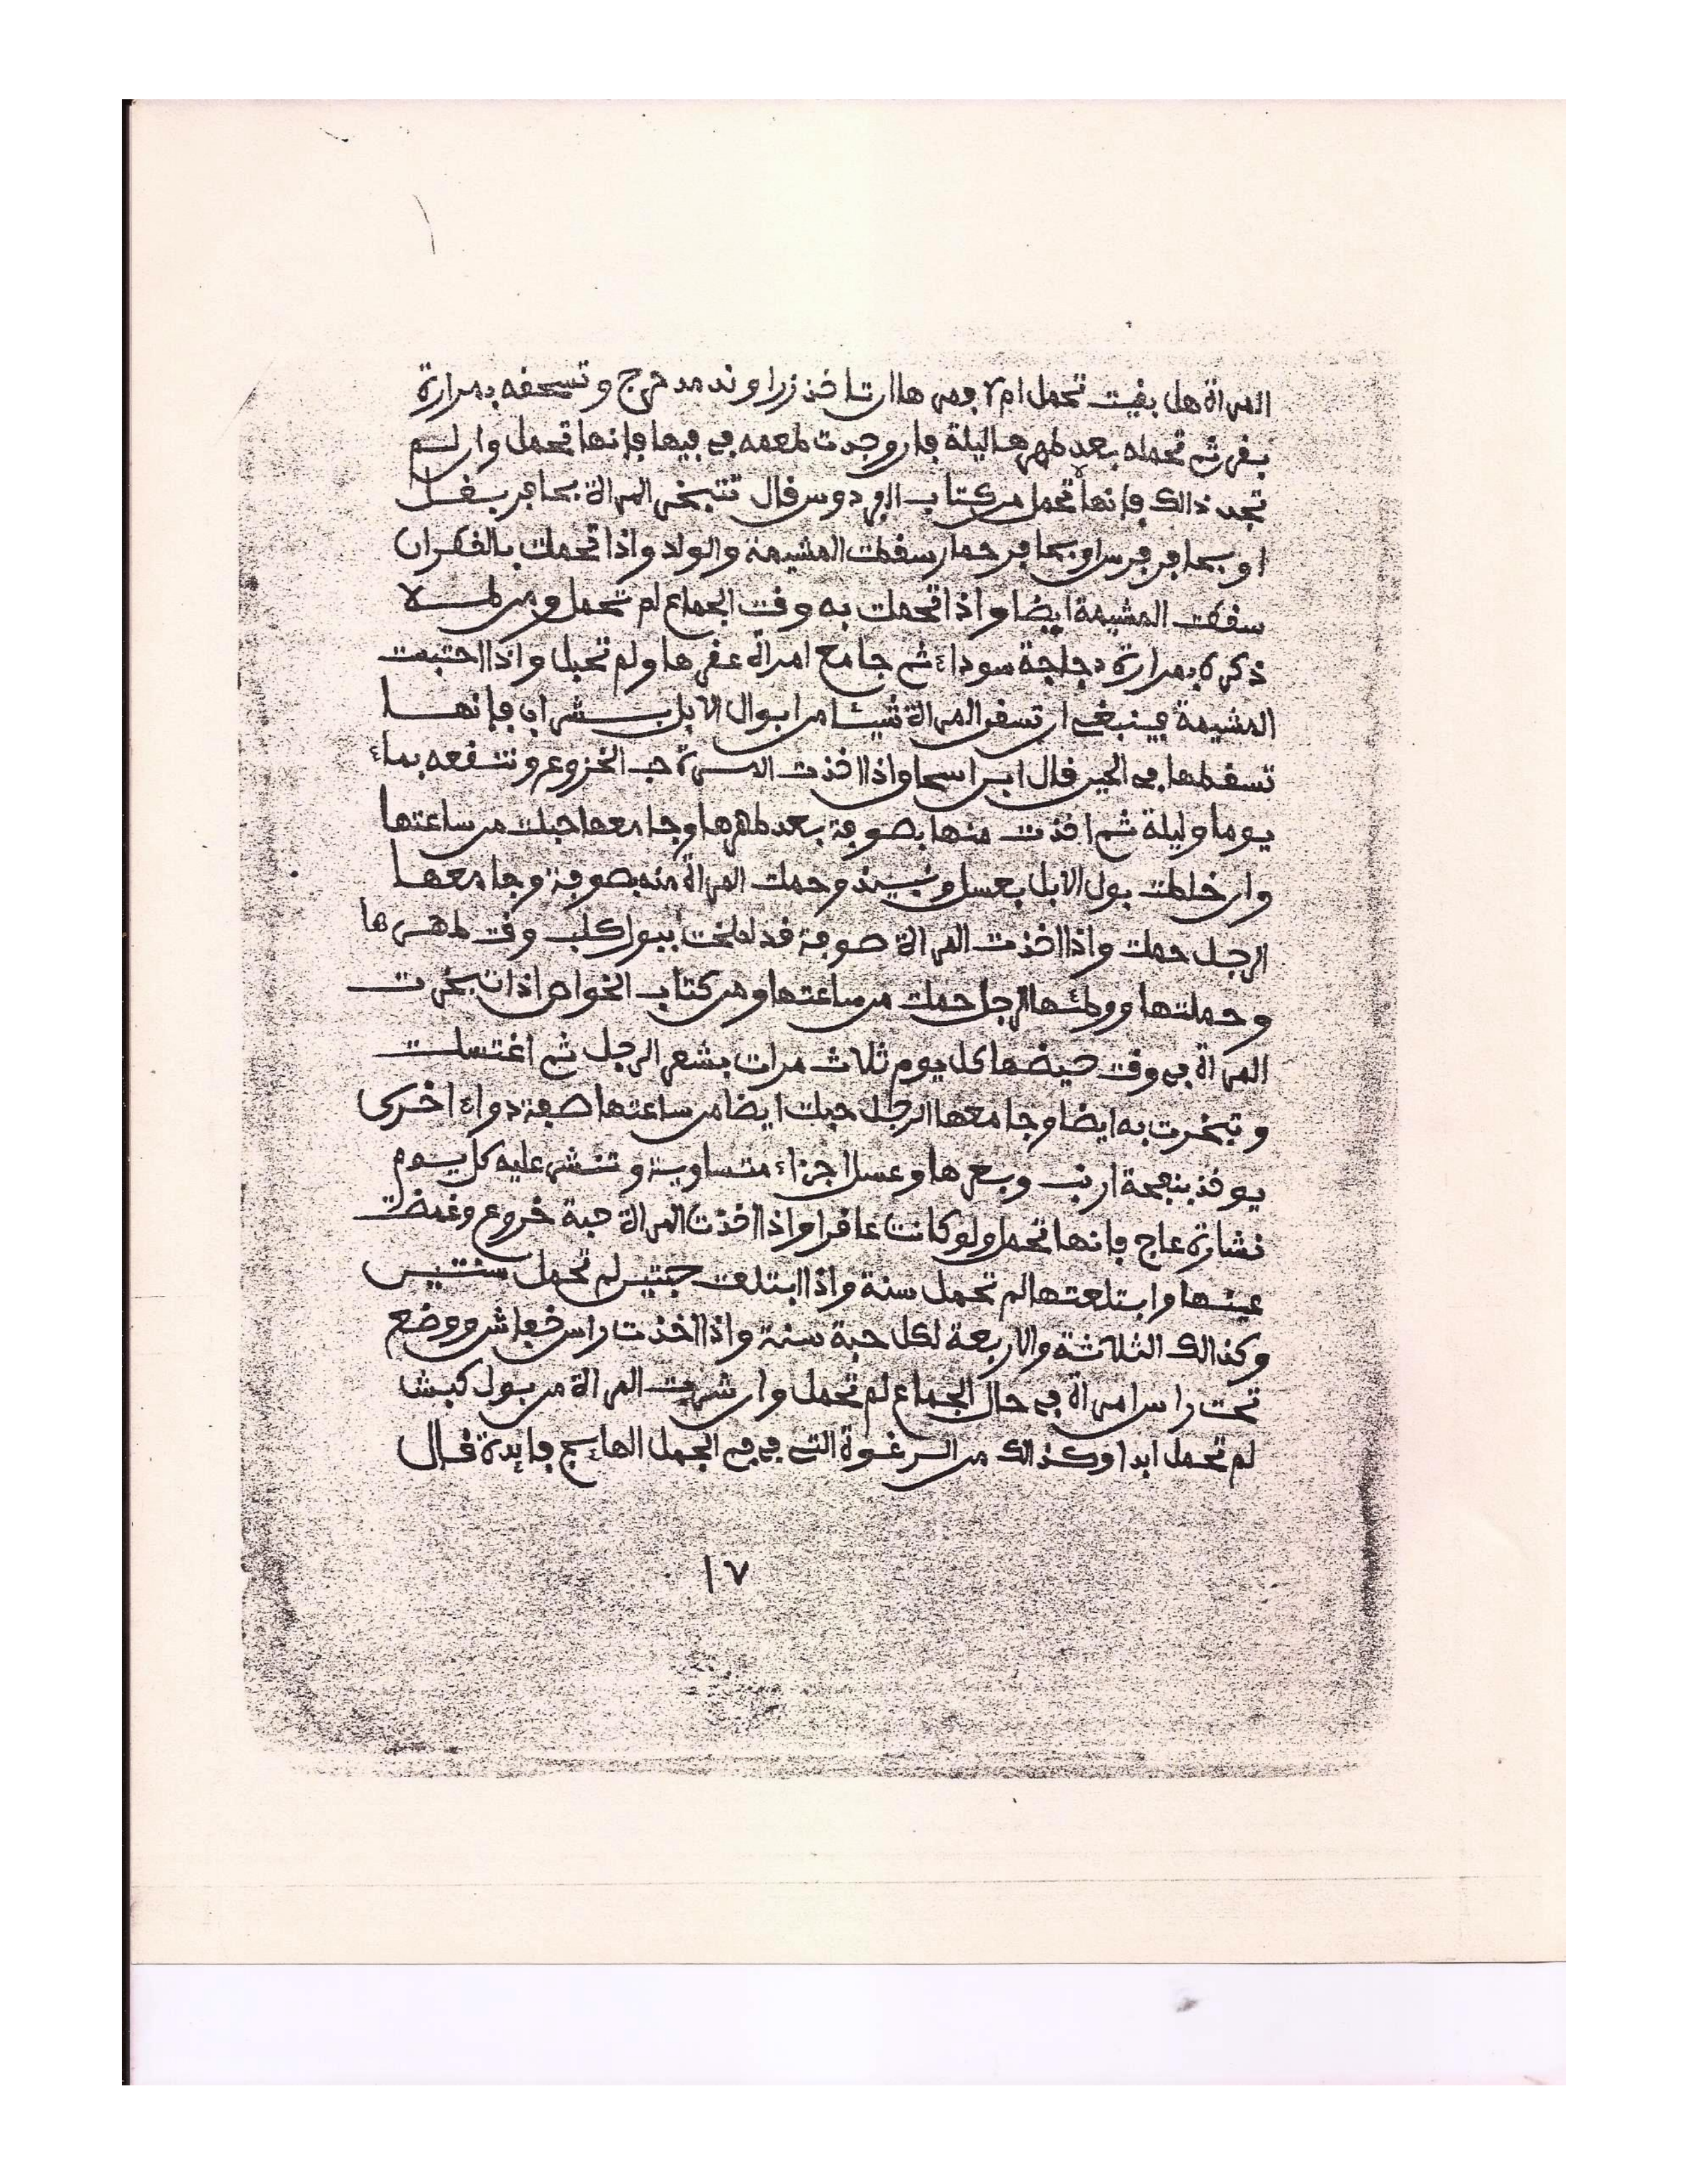 المراة هل بقيت تحمل ام لا فمرها ان تاخذ زراوند مدحرج وتسحقه بمرارة
بقر ثم تحمله بعد طهرها ليلة فان وجدت طعمه في فيها فانها تحمل وان لم
تجد ذالك فانها لا تحمل من كتاب الفردوس قال تتبخر المراة بحافر بغل
او بحافر فرس او بحافر حمار سقطت المشيمة والولد واذا تحملت بالقطران
سقطت المشيمة ايضا واذا تحملت به وقت الجماع لم تحمل ومن طلا
ذكره بمرارة دجاجة سوداء ثم جامع امراة عقرها ولم تحبل واذا احتبست
المشيمة فينبغي ان تسقى المراة شيئا من ابوال الابل بشراب فانها
تسقطها في الحين قال ابن اسحاق واذا اخذت المراة حب الخروع ونتقعه بماء
يوما وليلة ثم اخذت منها بصوفة بعد طهرها وجامعها حبلت من ساعتها
وان خلطت بول الابل بعسل ونبيذ وحملت المراة منه بصوفة وجامعها
الرجل حملت واذا اخذت المراة صوفة قد لطخت ببول كلب وقت طهرها
وحملتها ووطئها الرجل حملت من ساعتها ومن كتاب الخواص اذا تبخرت
المراة في وقت حيضها كل يوم ثلاث مرات بشعر الرجل ثم اغتسلت
وتبخرت به ايضا وجامعها الرجل حبلت ايضا من ساعتها صفة دواء اخرى
يوخذ بنفحة ارنب وبعرها وعسل اجزاء متساوية وتنشر عليه كل يوم
نشارة عاج فانها تحمل ولو كانت عاقرا واذا اخذت المراة حبة خروع وغمضت
عينها وابتلعتها لم تحمل سنة واذا ابتلعت حبتين لم تحمل سنتين
وكذالك الثلاثة والاربعة لكل حبة سنة واذا اخذت راس خفاش ووضع
تحت راس امراة في حال الجماع لم تحمل وان شربت المراة من بول كبش
لم تحمل ابدا وكذالك من الرغوة التي في فم الجمل الهايج فايدة قال
١٧